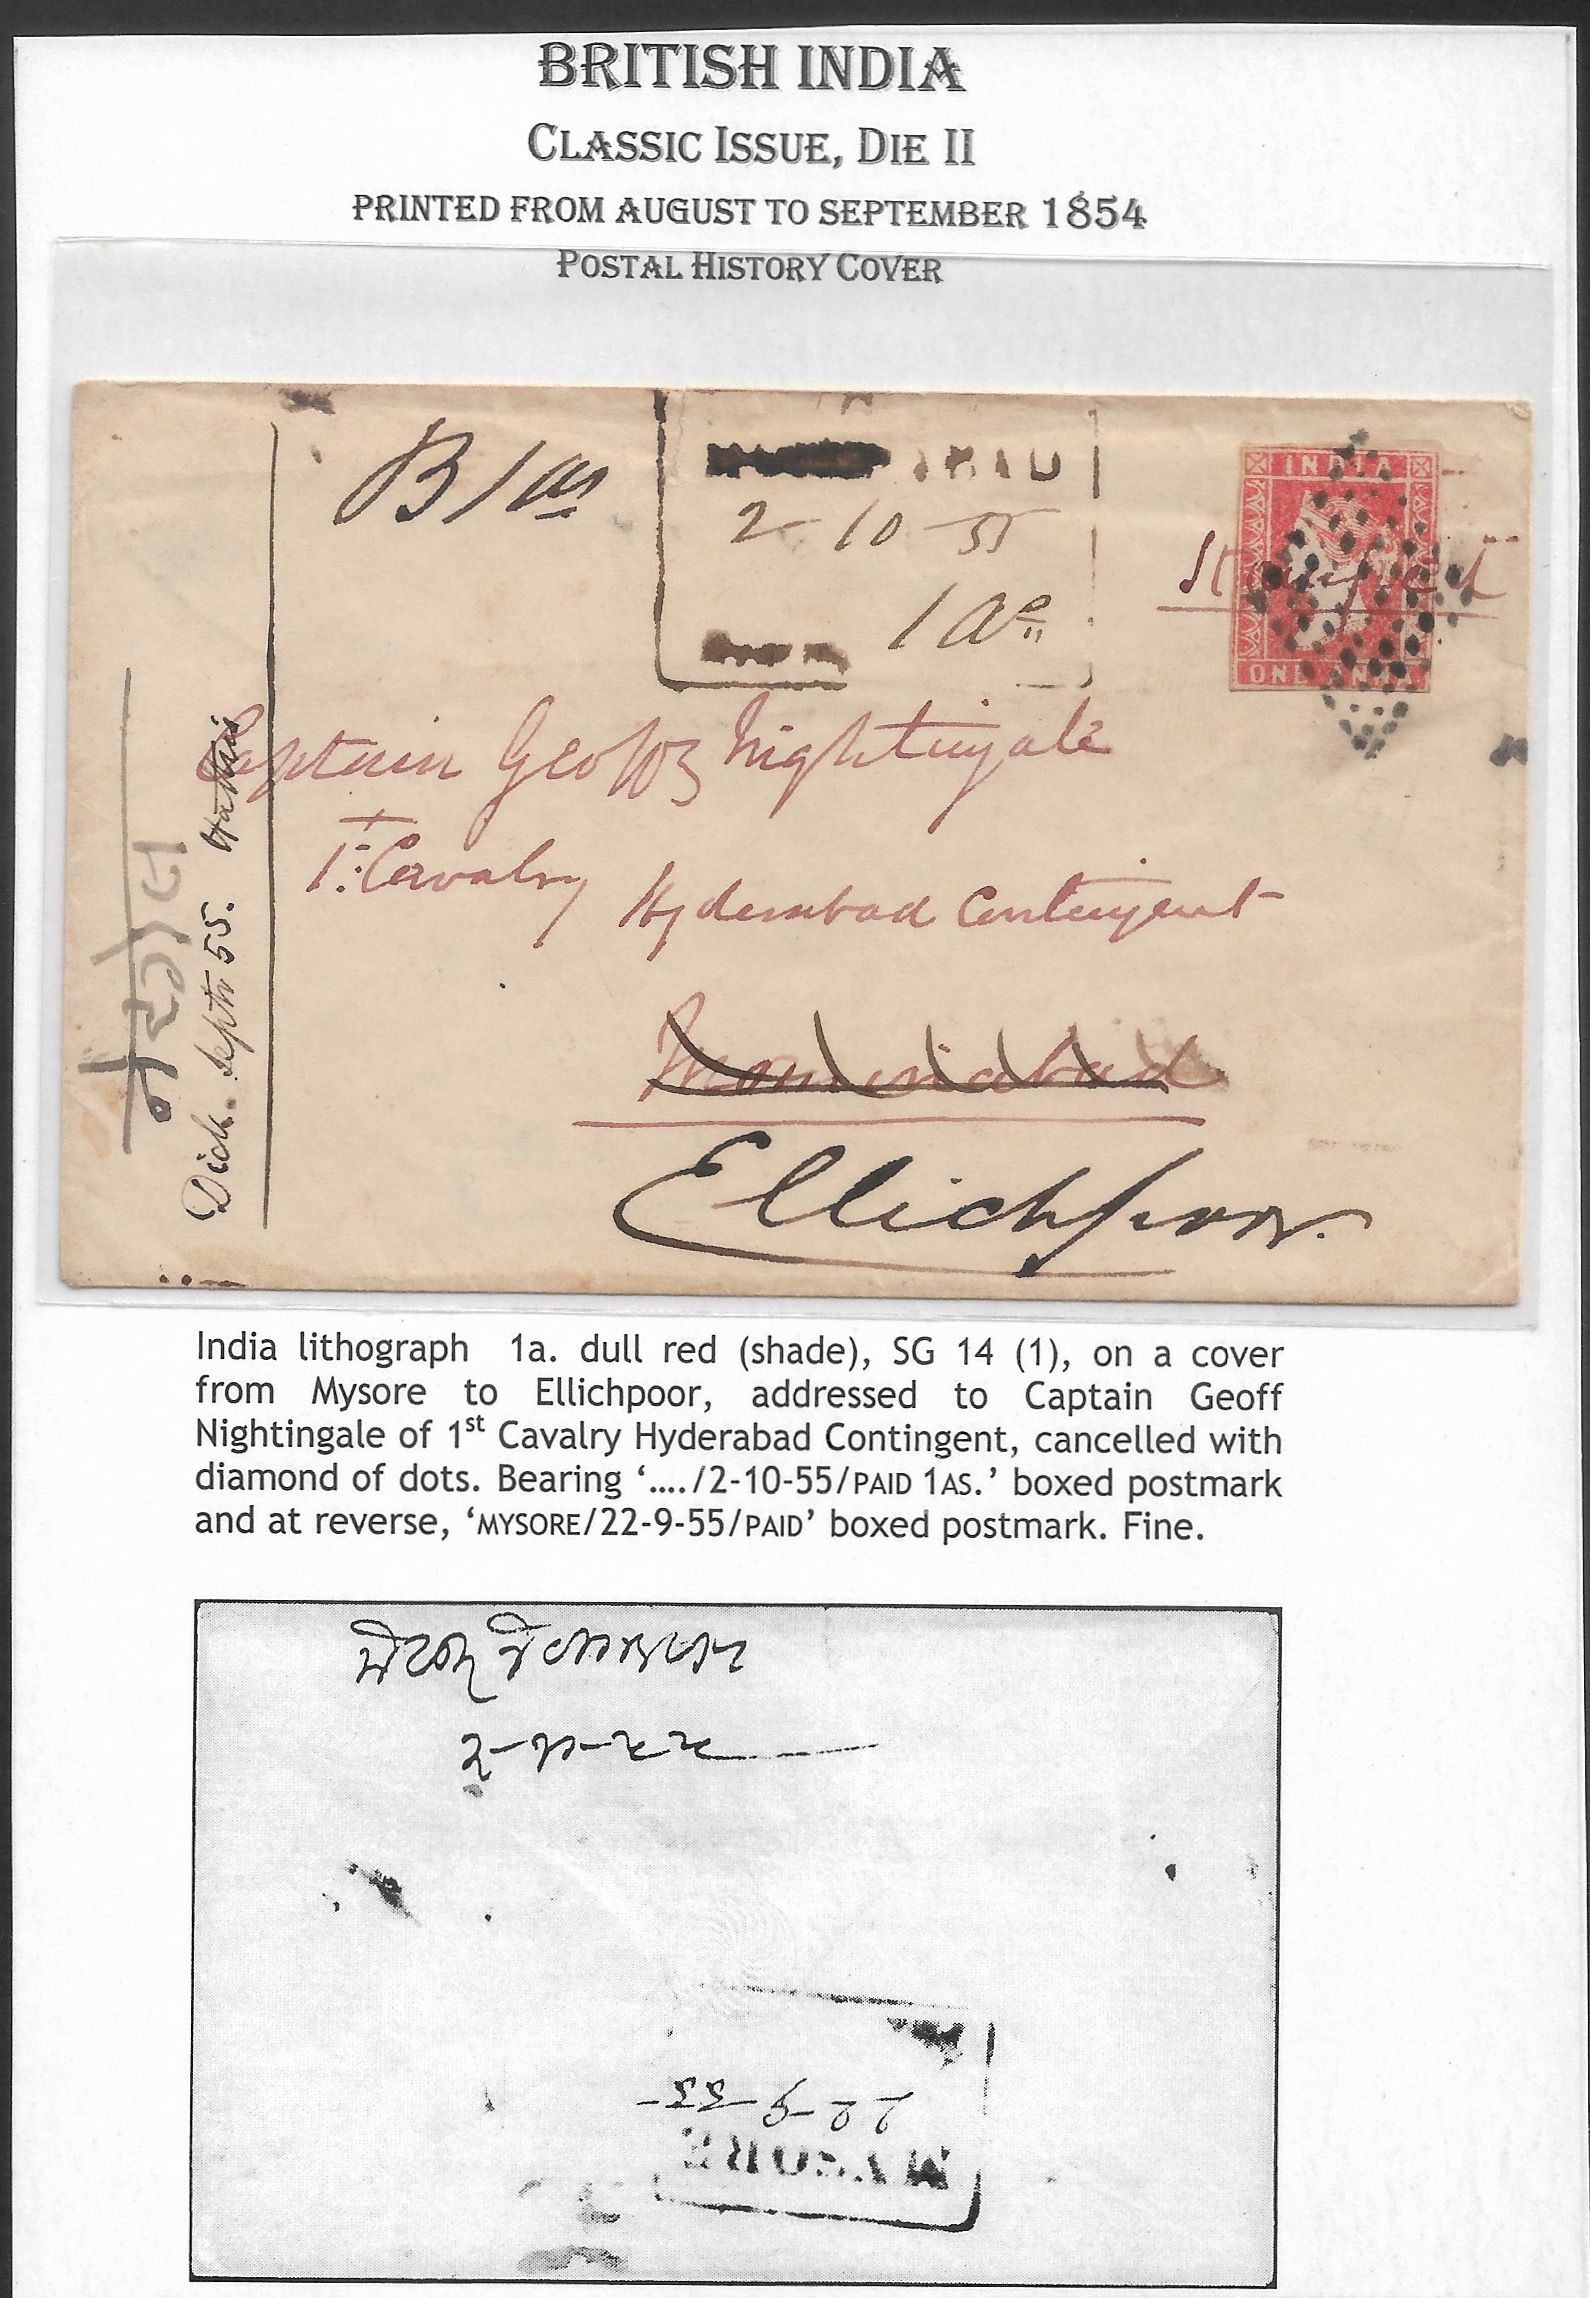 BRITISH INDIA
CLASSIC ISSUE, DIE II
PRINTED FROM AUGUST TO SEPTEMBER 1854
POSTAL HISTORY COVER
B 1 as
PAID
2-10-55
1 As
INDIA
ONE ANNA
Captain Geoff Nightingale
1st Cavalry Hyderabad Contingent
Mominabad
Ellichpoor.
Septr 55.
India lithograph 1a. dull red (shade), SG 14 (1), on a cover
from Mysore to Ellichpoor, addressed to Captain Geoff
Nightingale of 1st Cavalry Hyderabad Contingent, cancelled with
diamond of dots. Bearing ‘…./2-10-55/PAID 1AS.’ boxed postmark
and at reverse, ‘MYSORE/22-9-55/PAID’ boxed postmark. Fine.
22-9-55
MYSORE